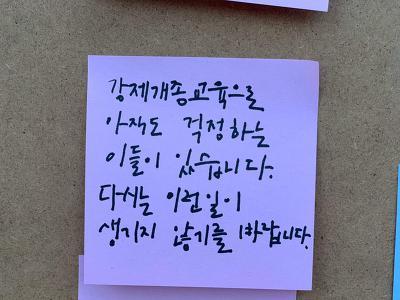 강제개종교육으로
아직도 걱정하는
이들이 있습니다.
다시는 이런일이
생기지 않기를 바랍니다.